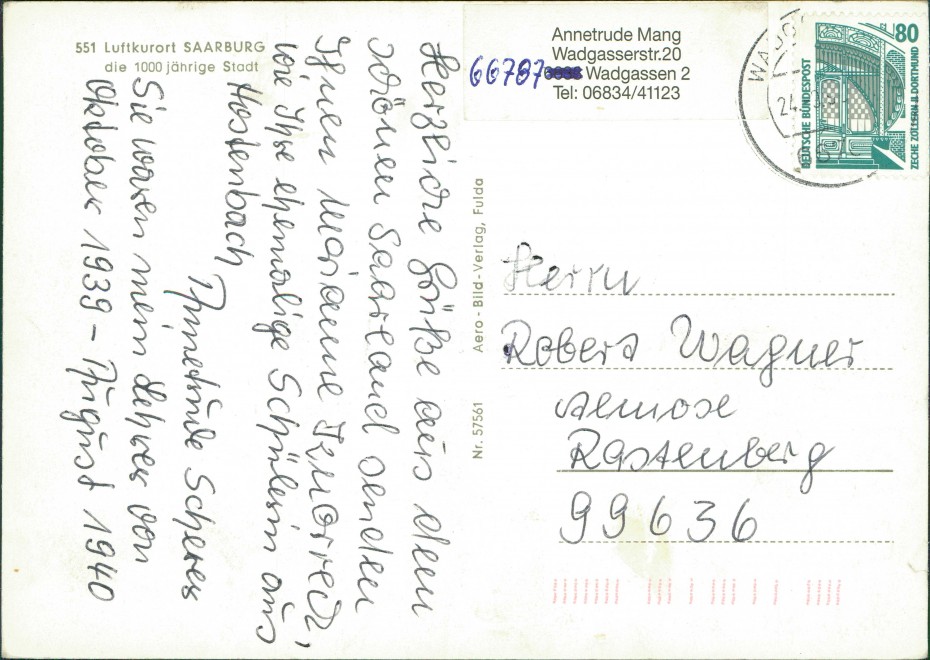 551 Luftkurort SAARBURG
die 1000 jährige Stadt
Herzliche Grüße aus dem
schönen Saarland senden
Ihnen Marianne
wie Ihre ehemalige Schülerin aus
Hostenbach
Annetrude Scherer
Sie waren mein Lehrer von
Oktober 1939 - August 1940
Nr. 57561 Aero - Bild - Verlag, Fulda
Annetrude Mang
Wadgasserstr.20
66787 Wadgassen 2
Tel: 06834/41123
DEUTSCHE BUNDESPOST
80
ZECHE ZOLLERN II DORTMUND
Herrn
Robert Wagner
Rastenberg
99636